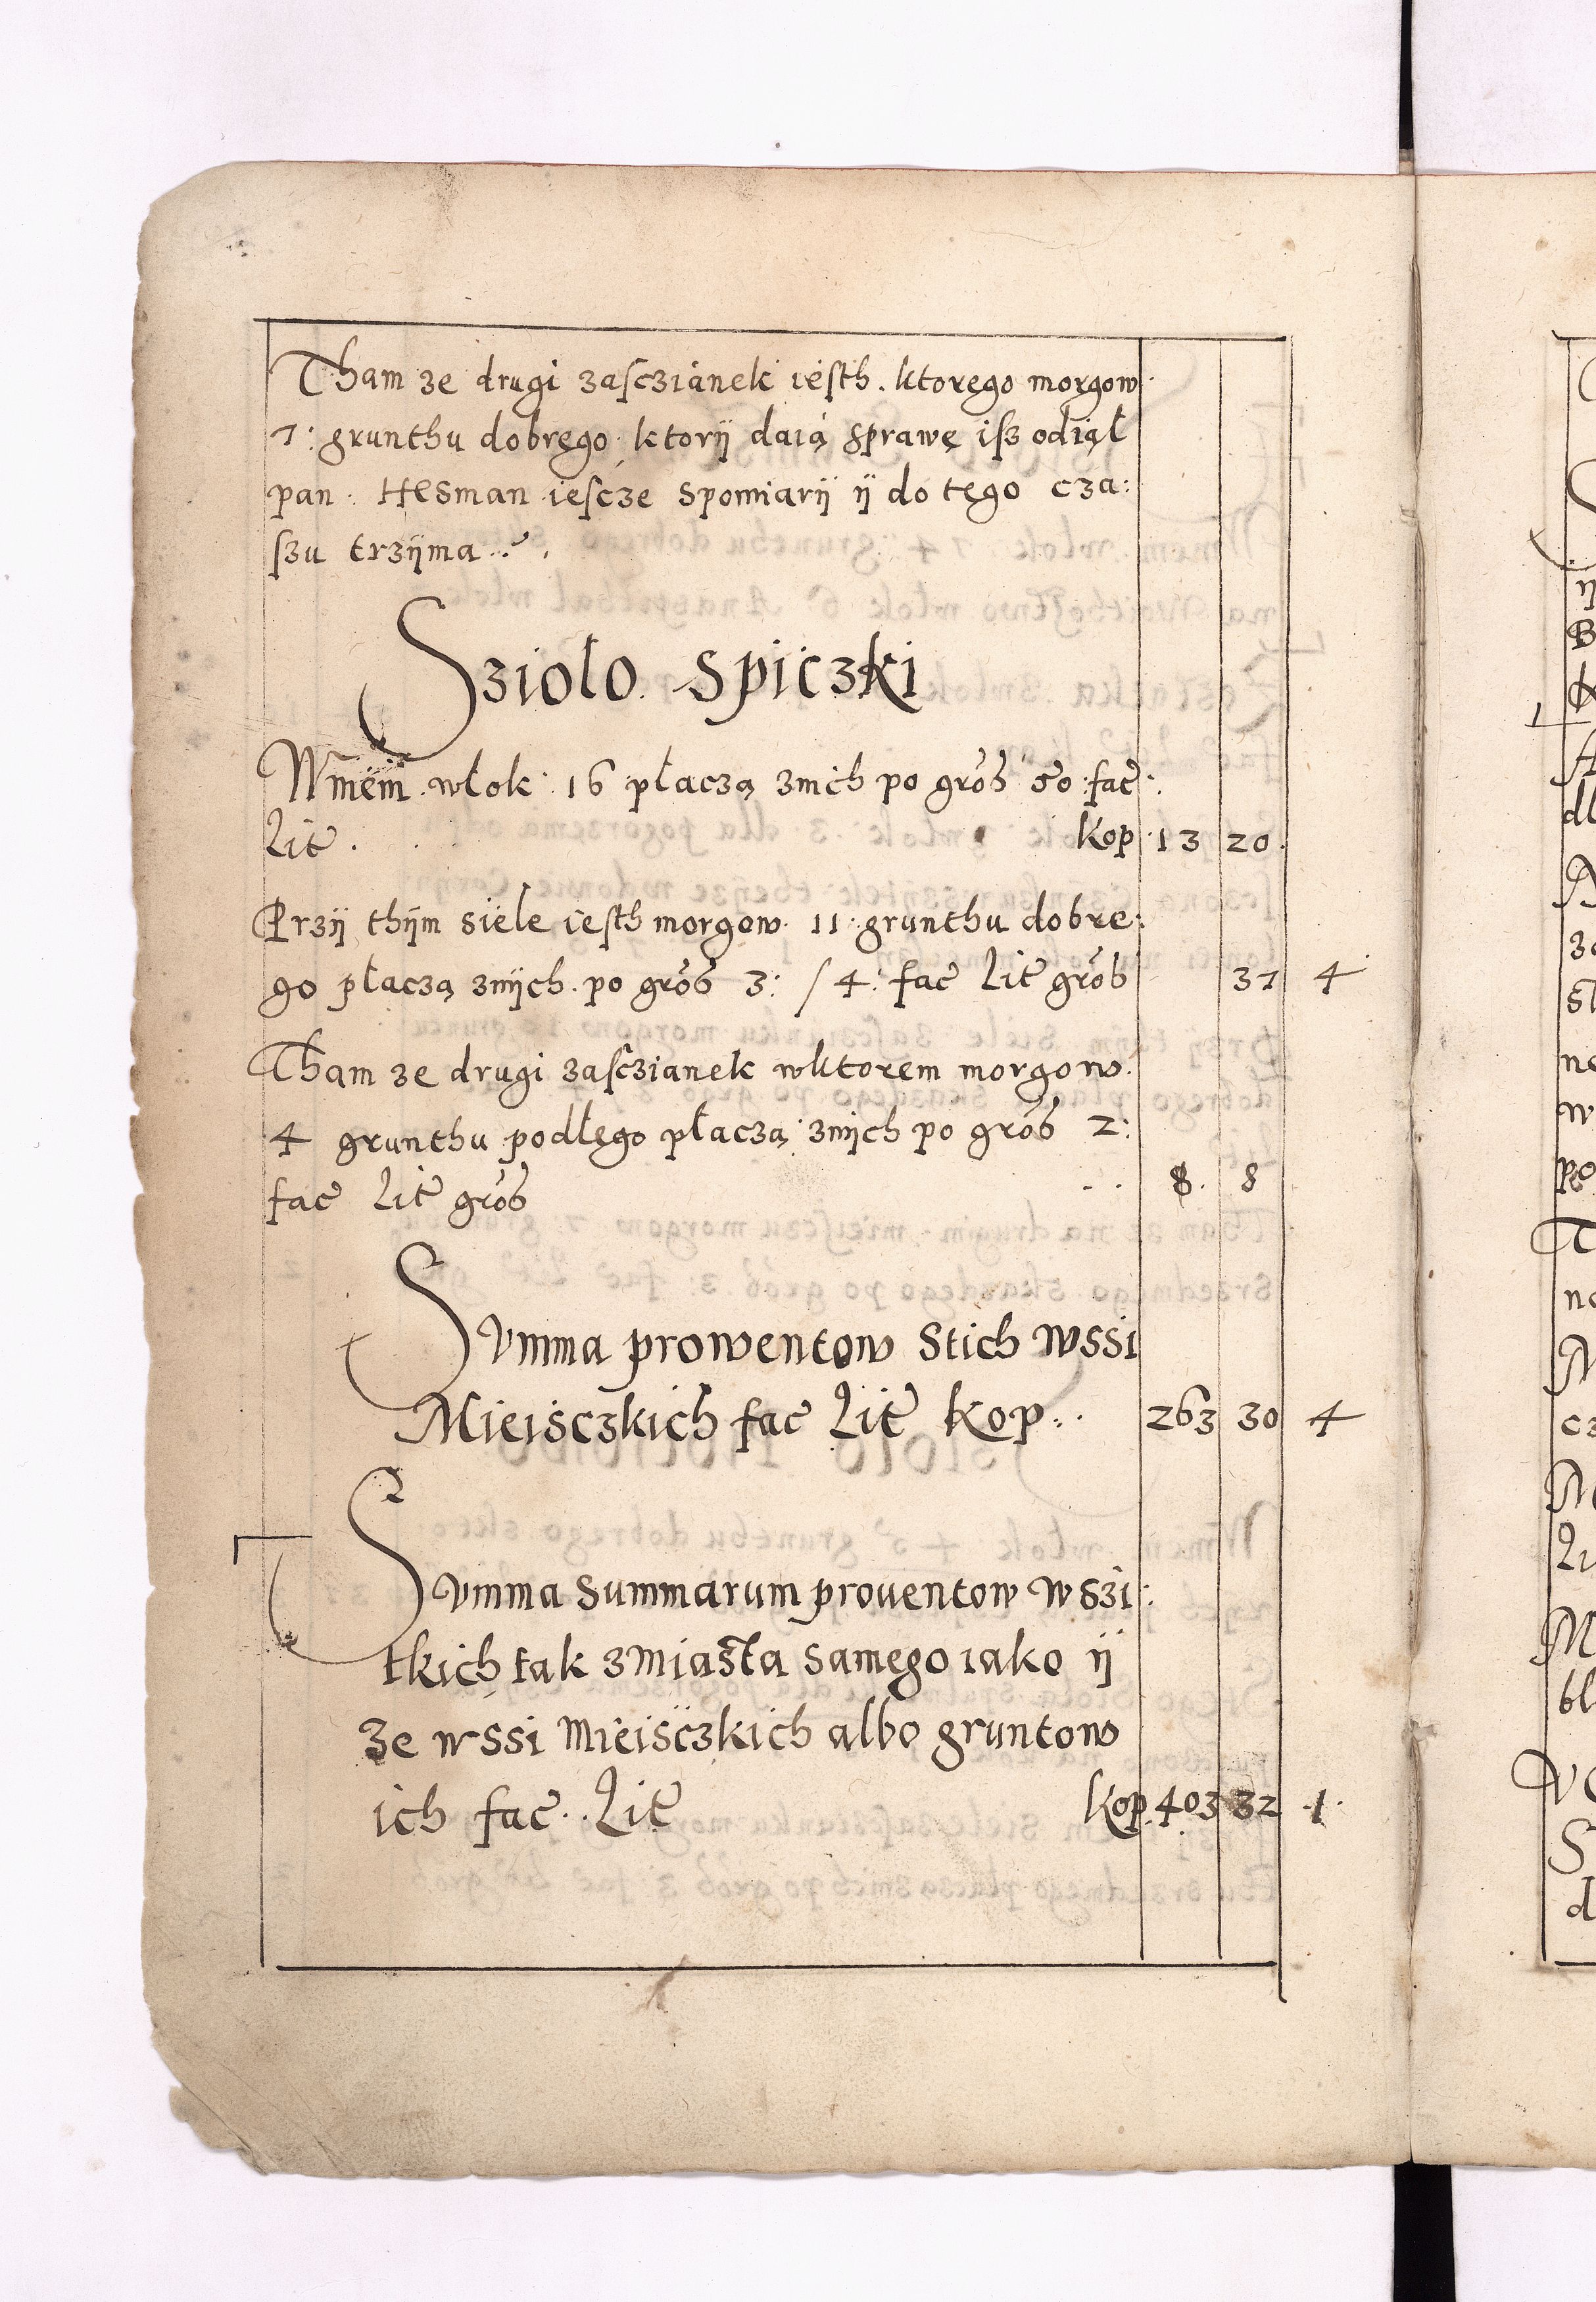 Tham ze drugi zasczianek iesth. ktorego morgow
7: grunthu dobrego. ktorij daią sprawę isz odiął
pan. Hesman iescze spomiarij ij do tego cza:
szu trzijma.
Sziolo Spiczki
Wniem. włok. 16 płaczą znich po grosz 50. fac.
Lit. kop 13 20.
Przij thijm siele iesth morgow. 11. grunthu dobre:
go płaczą znijch. po grosz 3: / 4: fac Lit grosz 37 4
Tham ze drugi zasczianek wktorem morgow.
4 grunthu podłego płaczą znijch po grosz 2:
fac Lit grosz 8. 8
Summa prowentow stich wssi
Mieisczkich fac Lit kop. 263 30 4
Summa summarum prouentow wszi:
tkich tak zmiasta samego iako ij
ze wssi Mieisczkich albo gruntow
ich fac. Lit kop. 403 32 1.